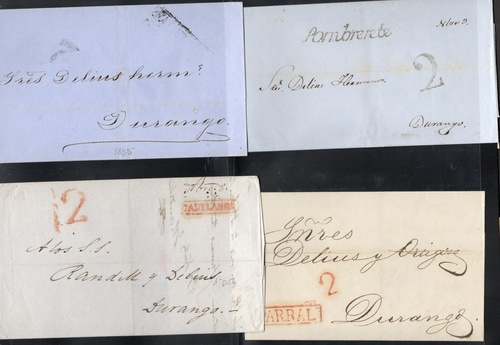 Sres Delius herms.
Durango.
1855
Sombrerete
2
Sres. Delius Hermanos.
Durango.
2
A los S.S.
Randell y Delius.
Durango.
Sñres
Delius y
2
PARRAL
Durango.